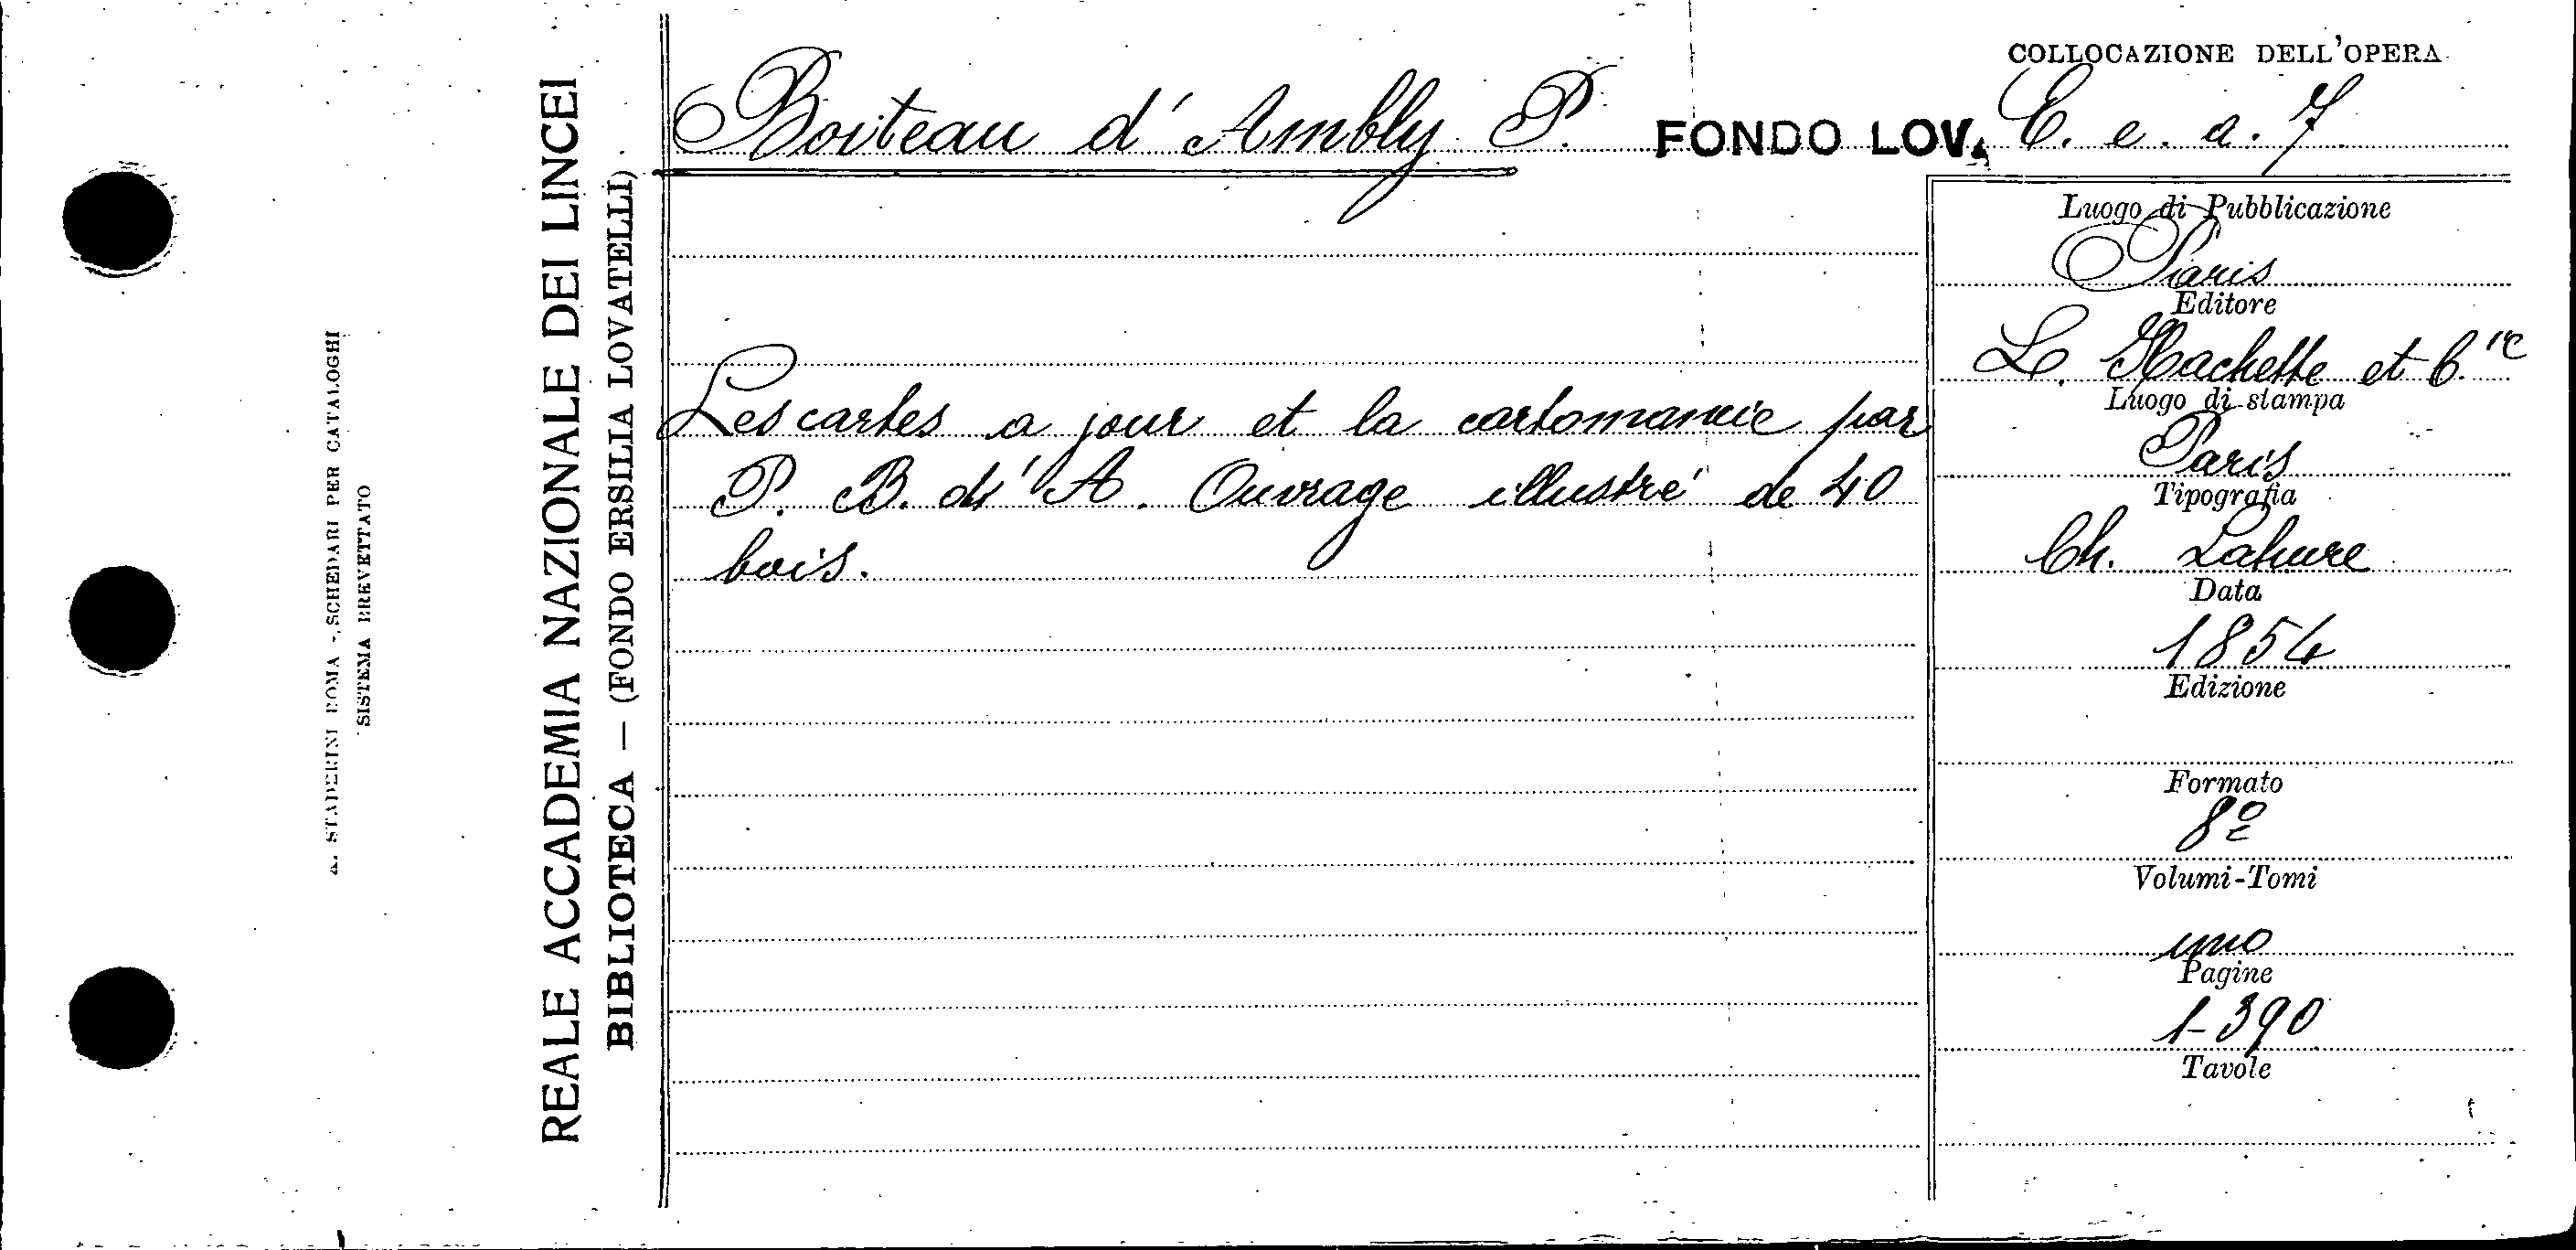 COLLOCAZIONE DELL'OPERA
Boiteau d'Ambly P. FONDO LOV. C. e. a. 7
Les cartes a jour et la cartomancie par
P. B. d'A. Ouvrage illustré de 40
bois.
Luogo di Pubblicazione
Paris
Editore
L. Hachette et C.ie
Luogo di stampa
Paris
Tipografia
Ch. Lahure
Data
1854
Edizione
Formato
8º
Volumi-Tomi
uno
Pagine
1-390
Tavole
REALE ACCADEMIA NAZIONALE DEI LINCEI
BIBLIOTECA — (FONDO ERSILIA LOVATELLI)
STADERINI ROMA - SCHEDARI PER CATALOGHI
SISTEMA BREVETTATO